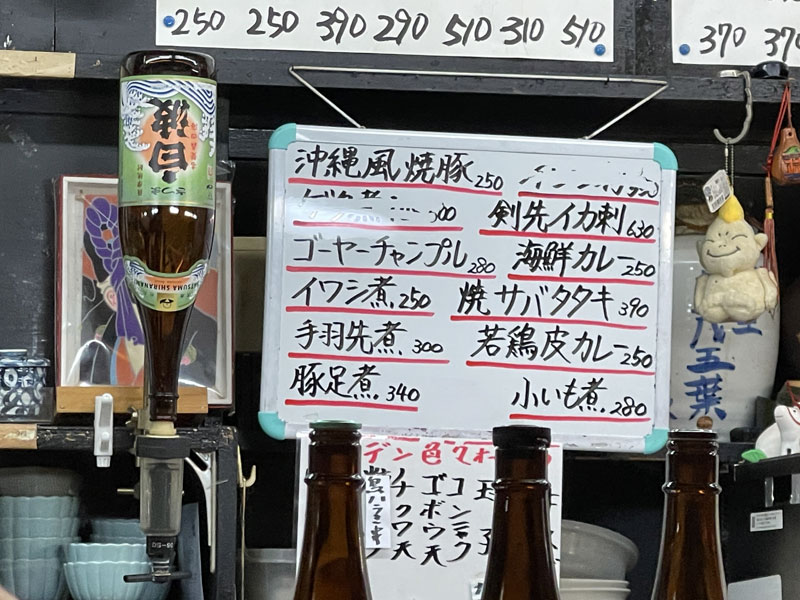 250 250 390 290 510 310 510
370
沖縄風焼豚 250
300
ゴーヤーチャンプル 280
イワシ煮 250
手羽先煮 300
豚足煮 340
剣先イカ刺 630
海鮮カレー 250
焼サバタタキ 390
若鶏皮カレー 250
小いも煮 280
白波
さつま
SATSUMA SHIRANAMI
デン色
チクワ天
ゴボウ天
コンニャク
玉葉